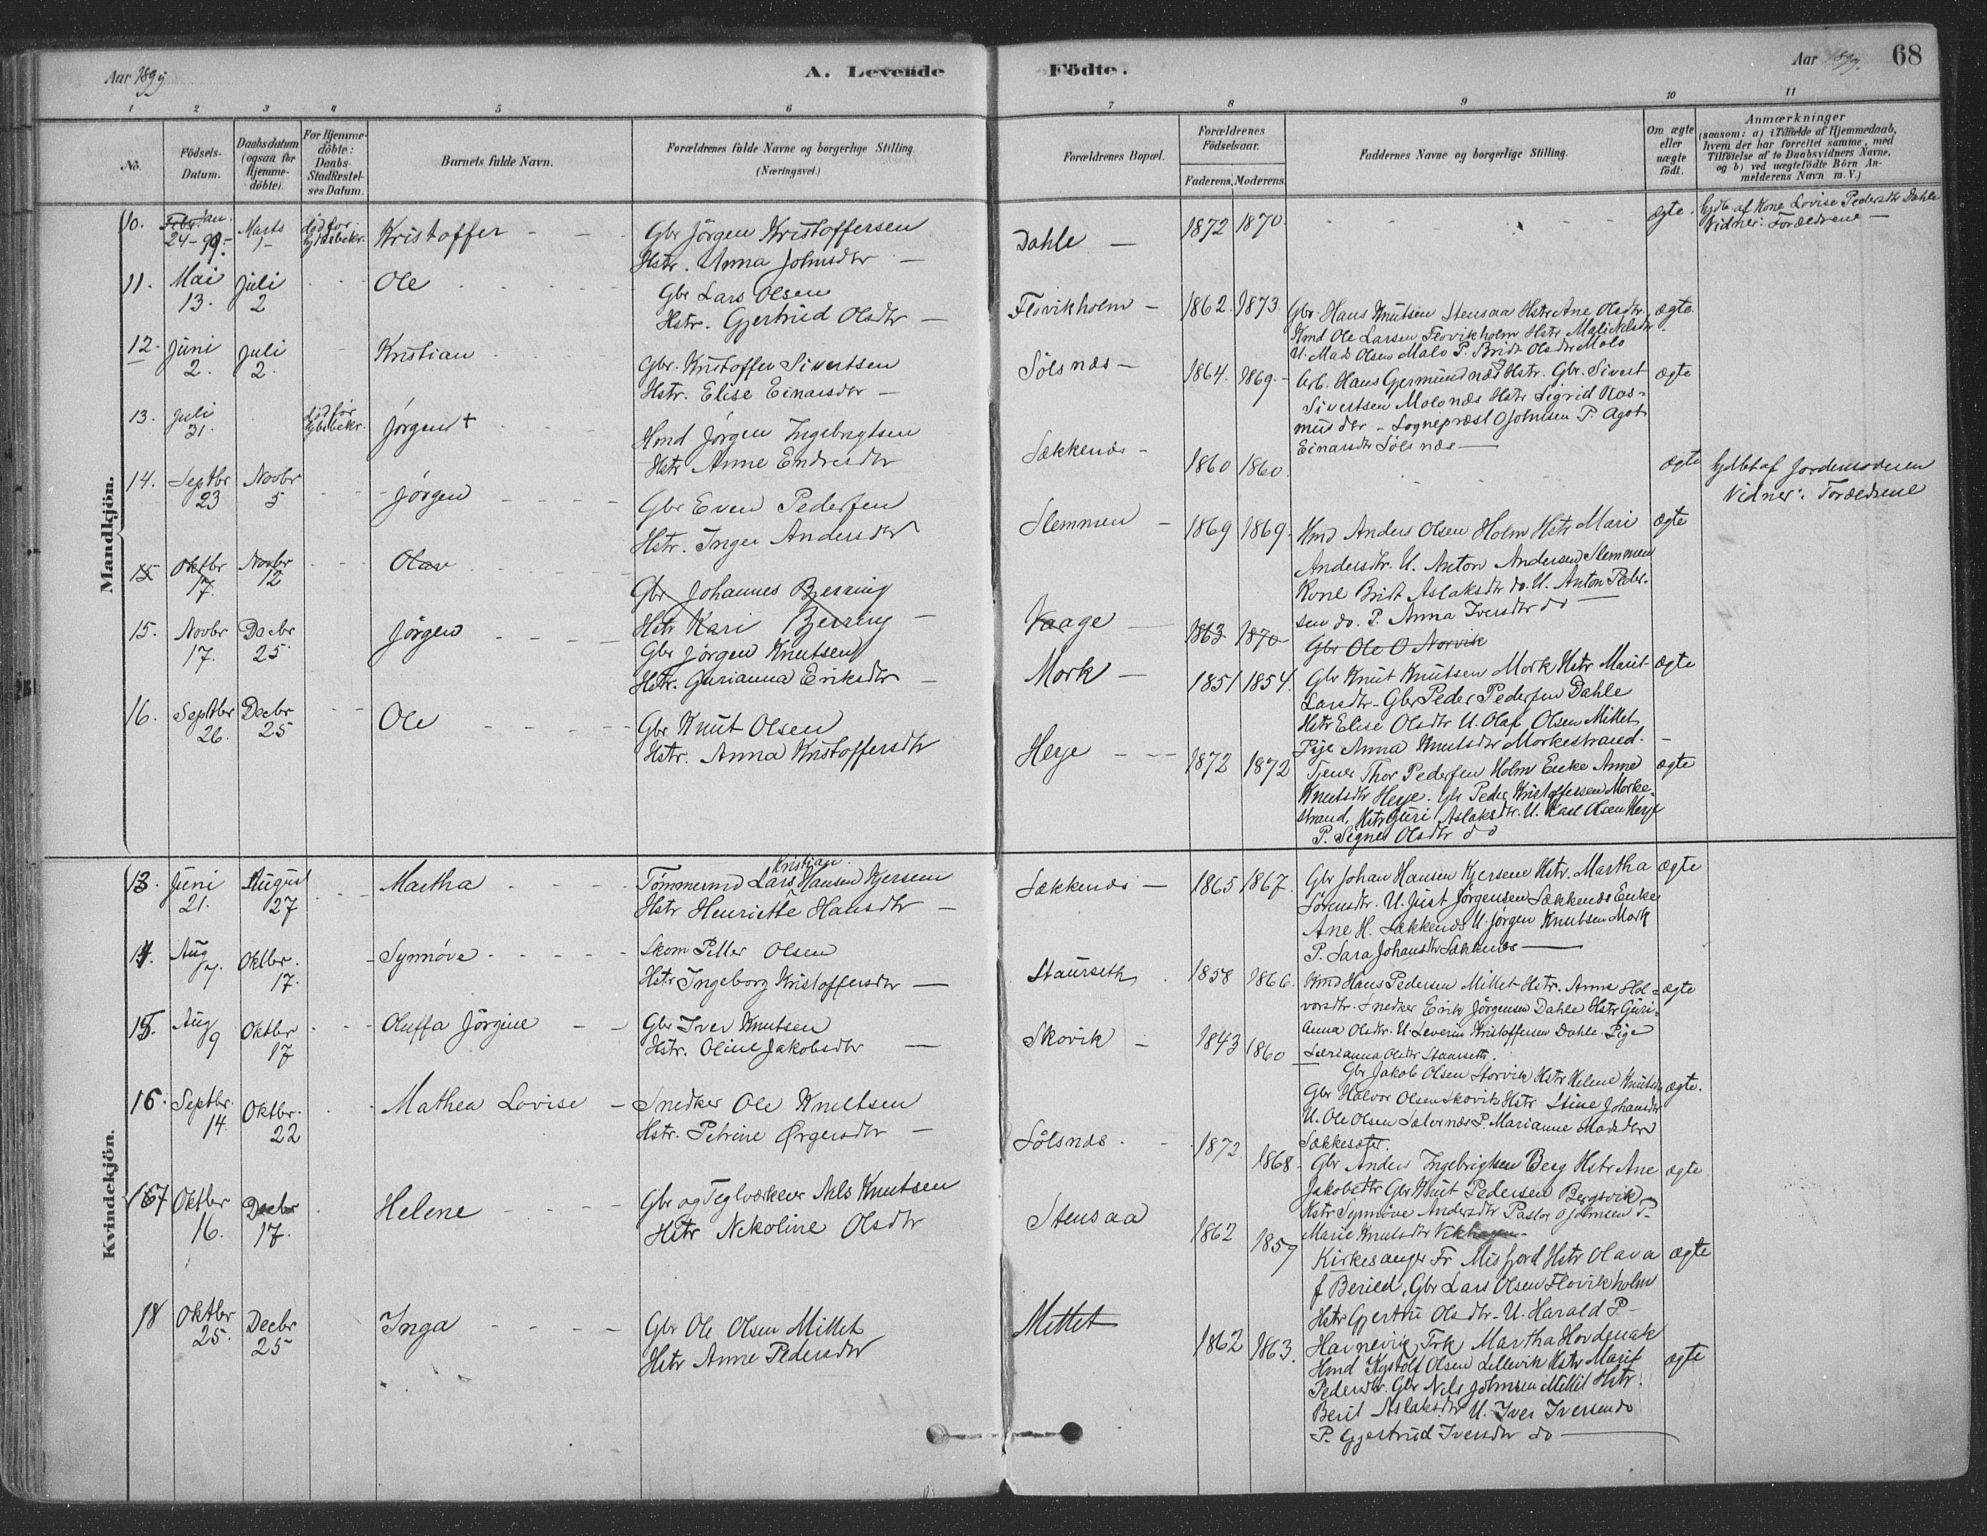 Aar 1899
A. Levende Födte.
Aar 1899.
68
1 2 3 4 5 6 7 8 9 10 11
No.
Födsels-Datum.
Daabsdatum (ogsaa for Hjemme-döbte).
For Hjemme-döbte: Daabs-Stadfæstel-ses Datum.
Barnets fulde Navn.
Forældrenes fulde Navne og borgerlige Stilling. (Næringsvei.)
Forældrenes Bopæl.
Forældrenes Födselsaar.
Faderens. Moderens.
Faddernes Navne og borgerlige Stilling.
Om ægte eller uægte födt.
Anmærkninger
(saasom: a) i Tilfælde af Hjemmedaab, hvem der har forrettet samme, med Tilföielse af to Daabsvidners Navne, og b) ved uægtefödte Börn An-melderens Navn m. V.)
Mandkjön.
10. Febr. Jan. 24-99.- Marts 1- død før Kristoffer - - -
Gbr Jörgen Kristoffersen
Hstr. Anna Johnsdtr -
Dahle - 1872 1870 ægte.
Hjdb af Kone Lovise Pedersdtr Dahle
Vidner: Forældrene -
11. Mai 13. Juli 2 Ole
Gbr Lars Olsen
Hstr. Gjertrud Olsdtr -
Flovikholm - 1862. 1873.
Gbr. Hans Knutsen Stensaa Hstr Ane Olsdtr. ægte.
Kmd Ole Larsen Flovikholm Hstr
U. Mads Olsen Malo P. Brit Olsdtr Malo
12. Juni 2. Juli 2. Kristian
Gbr. Kristoffer Sivertsen
Hstr. Elise Einarsdtr -
Sölsnæs - 1864. 1869.-
Arb. Hans Germundnæs Hstr. Gbr. Sivert ægte
Sivertsen Molsnæs Hstr Sigrid Ras-
musdtr - Sognepræst O Johnsen P. Agot
Einarsdtr Sölsnæs -
13. Juli 31. død før Jørgen +
Hmd Jörgen Ingebrigtsen
Hstr Anne Endresdtr
Sækkenæs - 1860 1860. ægte
Hjdbt af Jordemoderen
Vidner: Forældrene
14. Septbr 23 Novbr 5 Jørgen
Gbr Even Pedersen
Hstr. Inger Andersdtr
Slemmen - 1869 1869.
Hmd Anders Olsen Holm Hstr Mari ægte
Andersdtr. U. Anton Andersen Slemmen
Kone Brit Aslaksdtr do. U. Anton Peder-
sen do. P. Anna Iversdtr do -
15 Oktbr 17. Novbr 12 Olav
Gbr Johannes Bjerring
Hstr Kari Bjerring -
Vaage - 1863 1870
Gbr Ole O Norvik
15. Novbr 17. Decbr 25. Jørgen
Gbr Jørgen Knutsen
Hstr. Gurianna Eriksdtr -
Mork - 1851 1854.
Gbr Knut Knutsen Mork Hstr Marit ægte
Larsdtr - Gbr Peder Pedersen Dahle
Hstr Elise Olsdtr U. Olaf Olsen Mittet
Pige Anna Knutsdtr Morkestrand. -
16. Septbr 26. Decbr 25 Ole
Gbr Knut Olsen
Hstr. Anna Kristoffersdtr
Heje - - - 1872 1872
Tjener Thor Pedersen Holm Enke Anne ægte
Knutsdtr Heje. Gbr Peder Kristoffersen Morke-
strand, Hstr Guri Aslaksdtr. U. Karl Olsen Heje
P. Signe Olsdtr do
Kvindekjön.
13. Juni 21. August 27 Martha
Tömmermd Lars Kristian Hansen Kjersem
Hstr Henriette Hansdtr -
Sækkenæs - 1865 1867.
Gbr Johan Hansen Kjersene Hstr. Martha ægte
Sørensdtr. U. Just Jørgensen Sækkenæs Enke
Ane H. Sækkenæs U. Jørgen Knutsen Mork
P. Sara Johansdtr Sækkenæs -
14. Aug 7. Oktbr. 17. Synnøve
Skom Petter Olsen
Hstr Ingeborg Kristoffersdtr -
Staurseth. 1858 1866.
Kmd Hans Pedersen Mittet Hstr. Anna Hol- ægte
vorsdtr. Snedker Erik Jørgensen Dahle Hstr Guri-
anna Olsdtr. U. Severin Kristoffersen Dahle. Pige
Særianna Olsdtr Staurseth.
15. Aug 9 Oktbr 17 Oluffa Jørgine
Gbr Iver Knutsen
Hstr. Oline Jakobsdtr -
Skovik - 1843 1860
Gbr Jakob Olsen Storvik Hstr Helene Knutsdtr ægte.
Gbr Halvor Olsen Skovik Hstr Stine Johansdtr
U. Ole Olsen Sæternæs P. Marianne Madsdtr
16. Septbr. 14. Oktbr. 22 Mathea Lovise
Snedker Ole Knutsen
Hstr. Petrine Ørgersdtr -
Sölsnæs. 1872. 1868.
Gbr Anders Ingebrigtsen Berg Hstr Ane ægte
Jakobsdtr Gbr Knut Pedersen Bergsvik
Hstr Synnøve Andersdtr Pastor O Johnsen P-
Marie Knutsdtr Vikhagen
167 Oktbr 16. Decbr 17. Helene
Gbr og Teglværkeier Nils Knutsen
Hstr Nekoline Olsdtr
Stensaa 1862 1859
Kirkesanger Fr Misfjord Hstr Olava ægte
f Berild, Gbr Lars Olsen Flovikholm
Hstr Gjertru Olsdtr - U. Harald P-
Havnevik Frk Martha Hovdenak
18 Oktbr 25. Decbr 25 Inga
Gbr Ole Olsen Mittet
Hstr Anne Pedersdtr
Mittet 1862 1863.
Hmd Kystolf Olsen Lillevik Hstr Marit ægte
Pedersdtr. Gbr Nils Johnsen Mittet Hstr.
Berit Aslaksdtr U. Iver Iversen do
P. Gjertrud Iversdtr do -